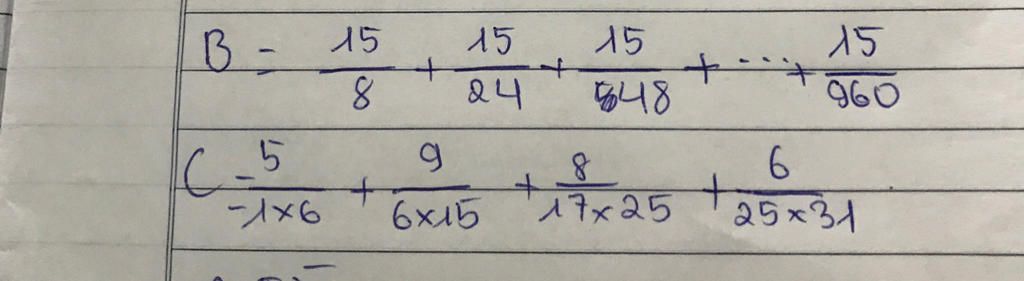 B = 15/8 + 15/24 + 15/48 + ... + 15/960
C = 5/-1×6 + 9/6×15 + 8/17×25 + 6/25×31